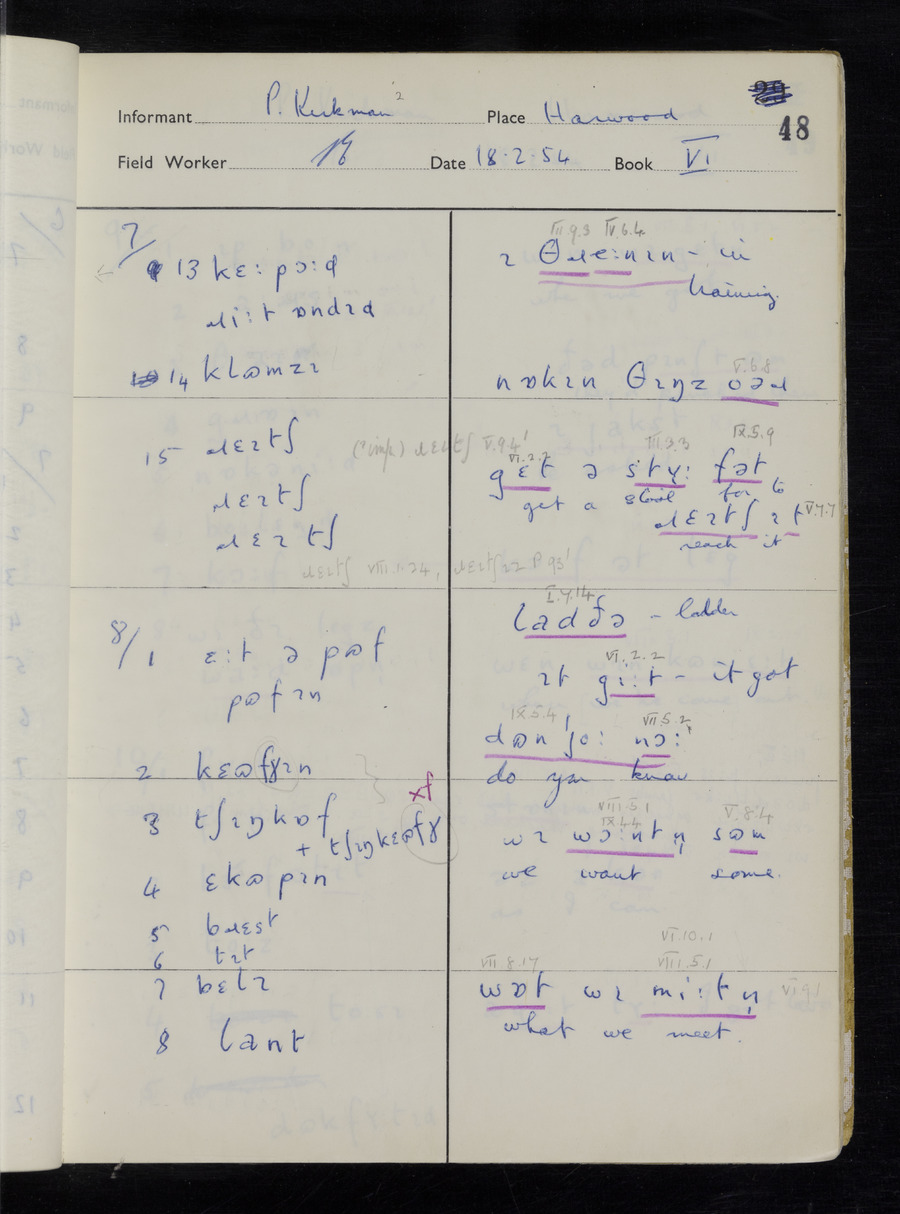 Informant P. Kirkman 2 Place Harwood
48
Field Worker Date 18.2.54 Book VI
7/
13 kɛ: pɔ:d
ɹi:t ɒndɪd
14 klɷmzɪ
15 ɹɛɪtʃ (? imp.) ɹɛɪtʃ V.9.4'
ɹɛɪtʃ
ɹɛɪtʃ
ɹɛɪtʃ VIII.1.24,
8/1 ɛ:t ə pɷf
pɷfɪn
2 kɛɷfɣɪn
3 tʃɪŋkɒf xf
+ tʃɪŋkɛɷfɣ
4 ɛkɷpɪn
5 bɹɛst
6 tɪt
7 bɛlɪ
8 lant
VII.9.3 IV.6.4
ɪ θɹe:nɪn - in
training.
V.6.8
nɒkɪn θɪŋz ɔəɹ
VI.2.2 VII.3.3 IX.5.9
gɛt ə stʏ: fət
get a stool for to
ɹɛɪtʃ ɪt V.7.7
reach it
I.7.14
ladðə - ladder
VI.2.2
ɪt gi:t - it got
IX.5.4 VII.5.2
dɷn jo: nɔ:
do you know
VIII.5.1
IX.4.4 V.8.4
wɪ wɔ:ntn̩ sɷm
we want some.
VI.10.1
VII.8.17 VIII.5.1
wɒt wɪ mi:tn̩ VI.9.1
what we meet.